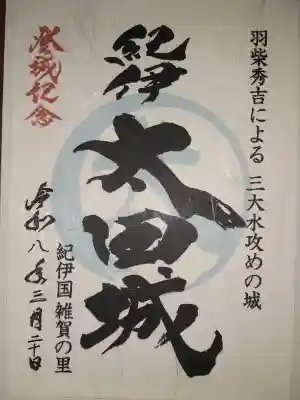 羽柴秀吉による 三大水攻めの城
紀伊
太田城
登城記念
紀伊国雑賀の里
令和八年三月二十日